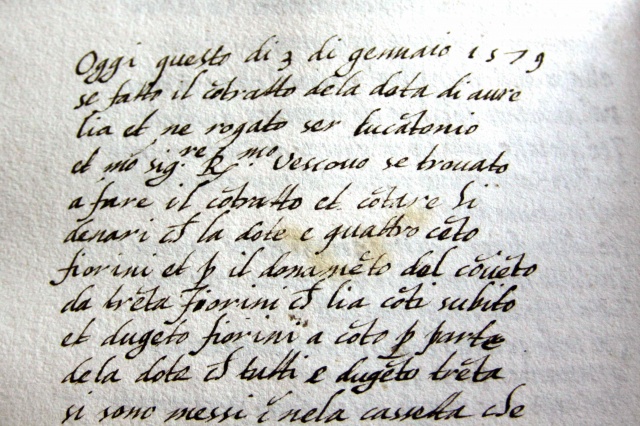 Oggi questo di 3 di gennaio 1579
se fatto il cōtratto dela dota di aure
lia et ne rogato ser lucātonio
et mōsig.re R.mo Vescovo se trovato
a fare il cōtratto et cōtare li
denari cħ la dote e quattro cēto
fiorini et ꝑ il donamēto del cōvēto
da trēta fiorini cħ lia cōti subito
et dugēto fiorini a cōto ꝑ parte
dela dote cħ tutti e dugēto trēta
si sono messi ī nela cassetta che